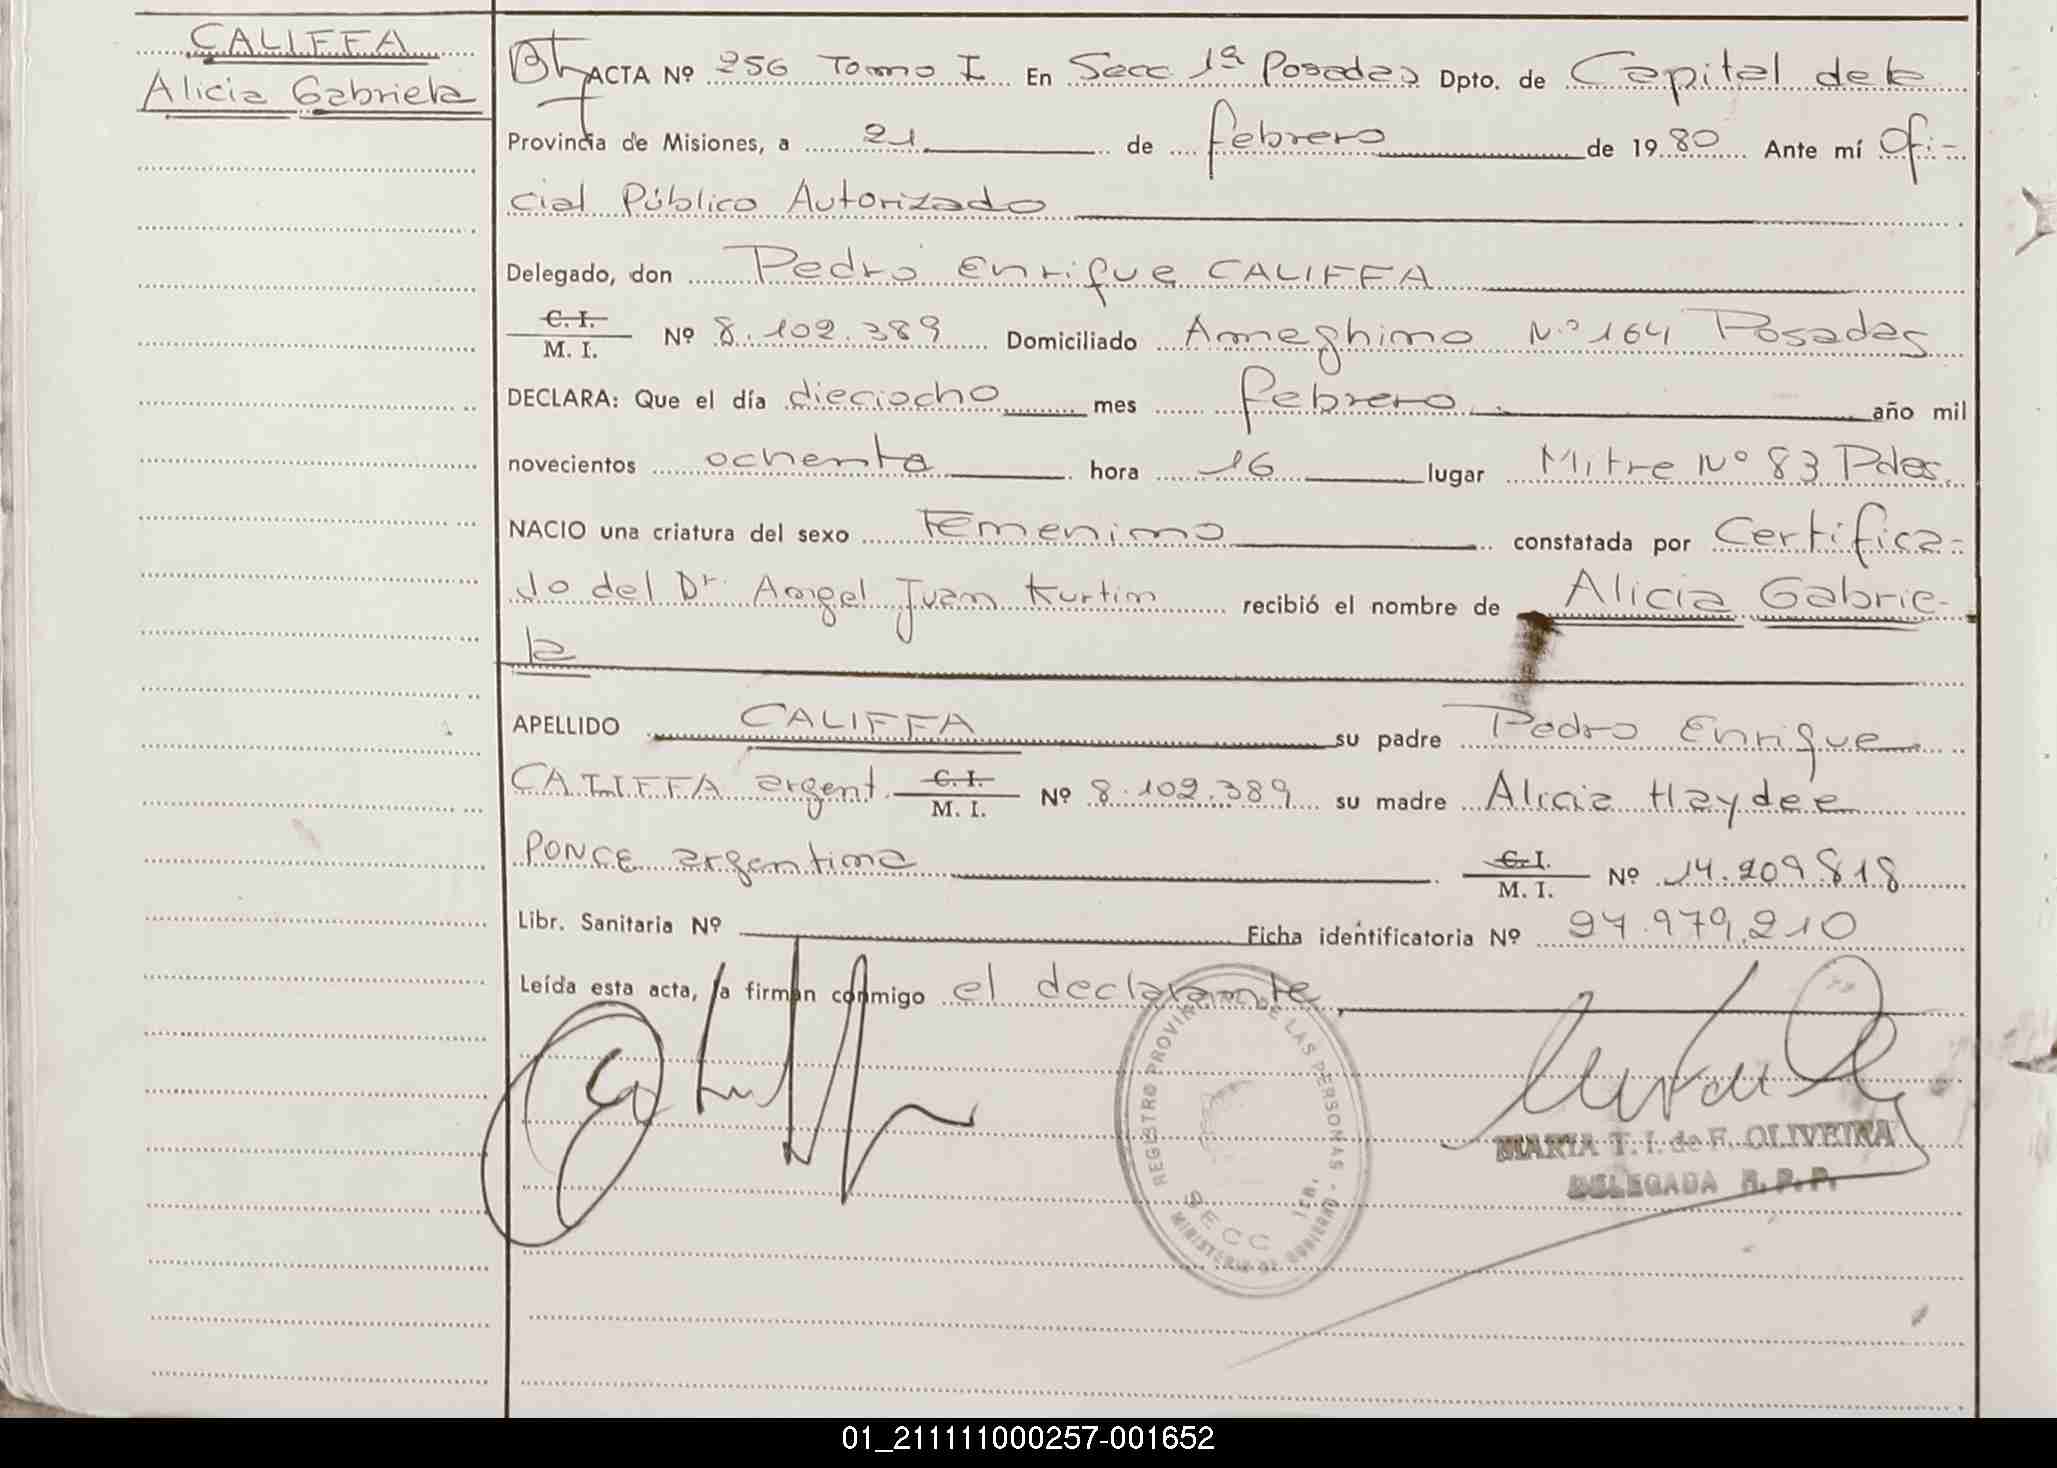 CALIFFA
Alicia Gabriela
ACTA Nº 256 Tomo I En Secc 1ª Posadas Dpto. de Capital de la
Provincia de Misiones, a 21 de febrero de 1980 Ante mí Ofi-
cial Público Autorizado
Delegado, don Pedro Enrique CALIFFA
C. I. / M. I. Nº 8.102.389 Domiciliado Ameghino Nº 164 Posadas
DECLARA: Que el día dieciocho mes febrero año mil
novecientos ochenta hora 16 lugar Mitre Nº 83 Pdas.
NACIO una criatura del sexo Femenino constatada por Certifica-
do del Dr. Angel Juan Kurtin recibió el nombre de Alicia Gabrie-
la
APELLIDO CALIFFA su padre Pedro Enrique
CALIFFA argent. C. I. / M. I. Nº 8.102.389 su madre Alicia Haydee
PONCE argentina C. I. / M. I. Nº 14.209.818
Libr. Sanitaria Nº Ficha identificatoria Nº 27.979.210
Leída esta acta, la firman conmigo el declarante
REGISTRO PROVINCIAL DE LAS PERSONAS
SECC 1ra.
MINISTERIO DE GOBIERNO
MARIA T. I. de F. OLIVEIRA
DELEGADA R. P. P.
01_211111000257-001652